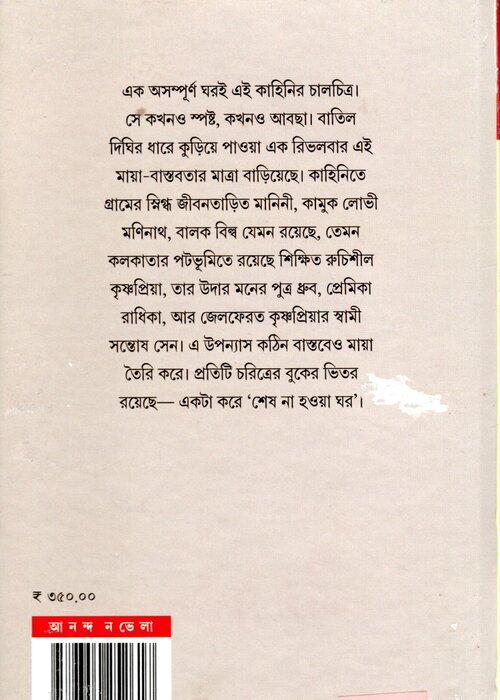 এক অসম্পূর্ণ ঘরই এই কাহিনির চালচিত্র।
সে কখনও স্পষ্ট, কখনও আবছা। বাতিল
দিঘির ধারে কুড়িয়ে পাওয়া এক রিভলবার এই
মায়া-বাস্তবতার মাত্রা বাড়িয়েছে। কাহিনিতে
গ্রামের স্নিগ্ধ জীবনতাড়িত মানিনী, কামুক লোভী
মণিনাথ, বালক বিল্ব যেমন রয়েছে, তেমন
কলকাতার পটভূমিতে রয়েছে শিক্ষিত রুচিশীল
কৃষ্ণপ্রিয়া, তার উদার মনের পুত্র ধ্রুব, প্রেমিকা
রাধিকা, আর জেলফেরত কৃষ্ণপ্রিয়ার স্বামী
সন্তোষ সেন। এ উপন্যাস কঠিন বাস্তবেও মায়া
তৈরি করে। প্রতিটি চরিত্রের বুকের ভিতর
রয়েছে— একটা করে ‘শেষ না হওয়া ঘর’।
₹ ৩৫০.০০
আনন্দ নভেলা